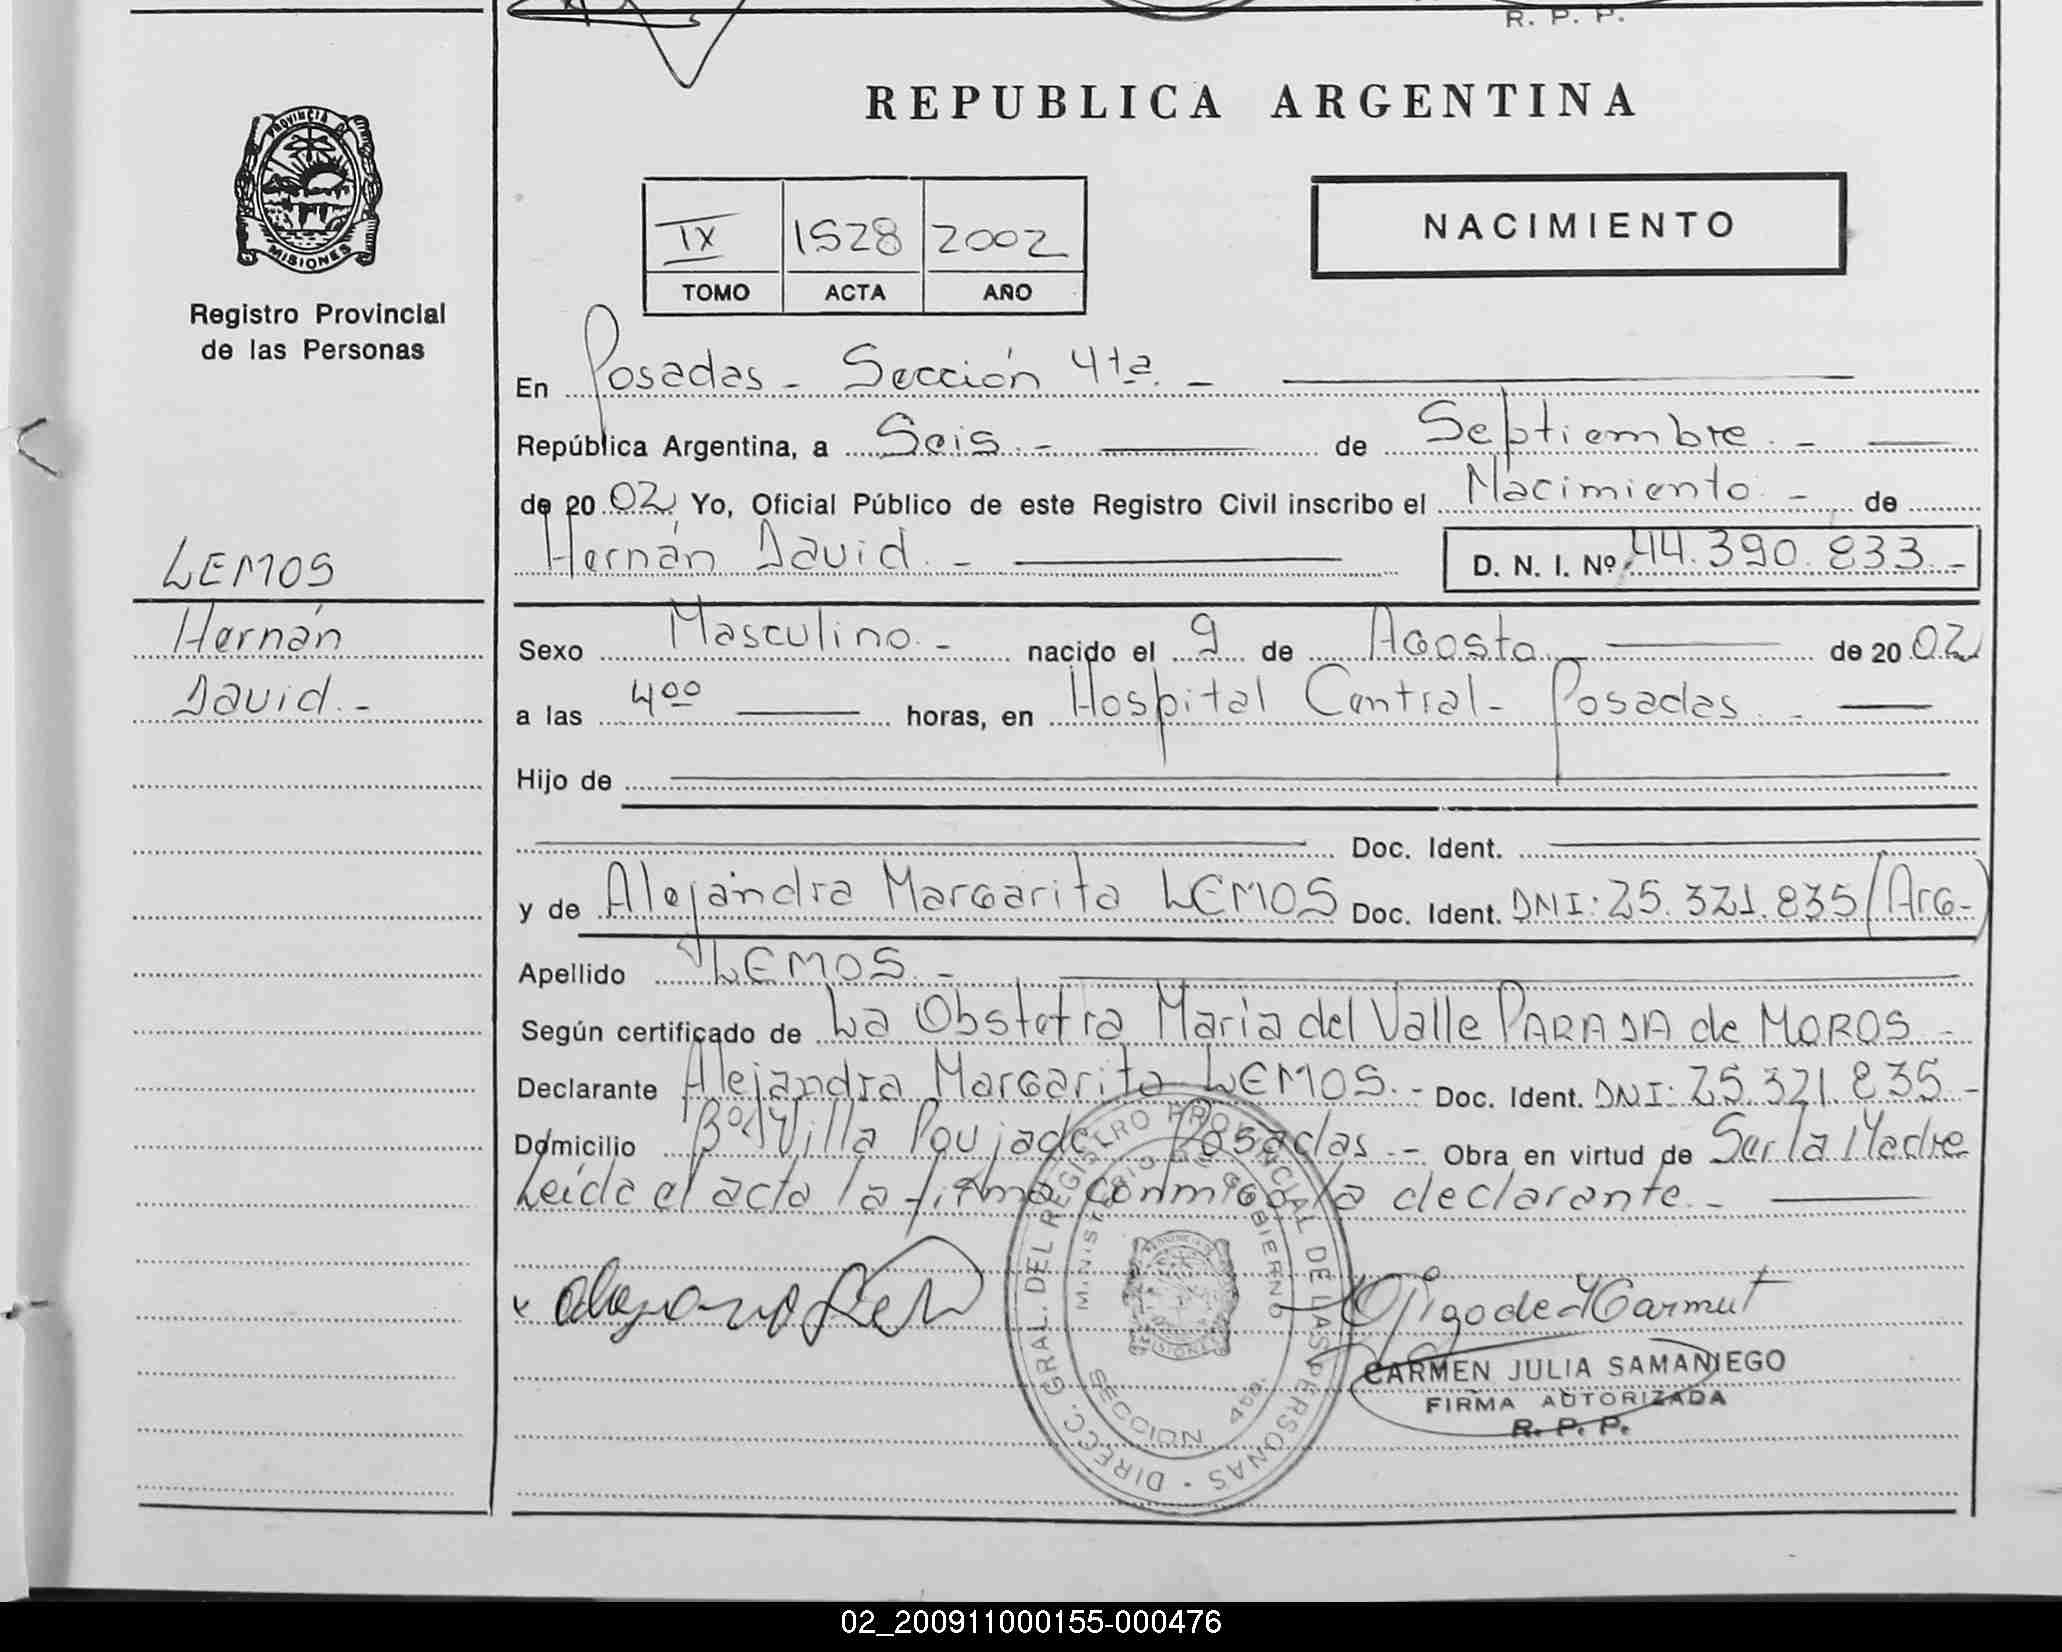 R. P. P.
REPUBLICA ARGENTINA
PROVINCIA DE
MISIONES
Registro Provincial
de las Personas
IX 1528 2002
TOMO ACTA AÑO
NACIMIENTO
En Posadas - Sección 4ta. -
República Argentina, a Seis. - de Septiembre. -
de 2002 Yo, Oficial Público de este Registro Civil inscribo el Nacimiento. - de
Hernán David. - D. N. I. Nº 44.390.833. -
LEMOS
Hernán
David. -
Sexo Masculino. - nacido el 9 de Agosto. de 2002
a las 400 horas, en Hospital Central - Posadas. -
Hijo de
Doc. Ident.
y de Alejandra Margarita LEMOS Doc. Ident. DNI: 25.321.835 (Arg-)
Apellido LEMOS. -
Según certificado de La Obstetra Maria del Valle PARADA de MOROS. -
Declarante Alejandra Margarita LEMOS. - Doc. Ident. DNI: 25.321.835 -
Domicilio Bº Villa Poujade Posadas. - Obra en virtud de Ser la Madre
Leída el acta la firma conmigo la declarante. -
DIRECC. GRAL. DEL REGISTRO PROVINCIAL DE LAS PERSONAS
MINISTERIO DE GOBIERNO
MISIONES
SECCION 4ta.
CARMEN JULIA SAMANIEGO
FIRMA AUTORIZADA
R. P. P.
02_200911000155-000476